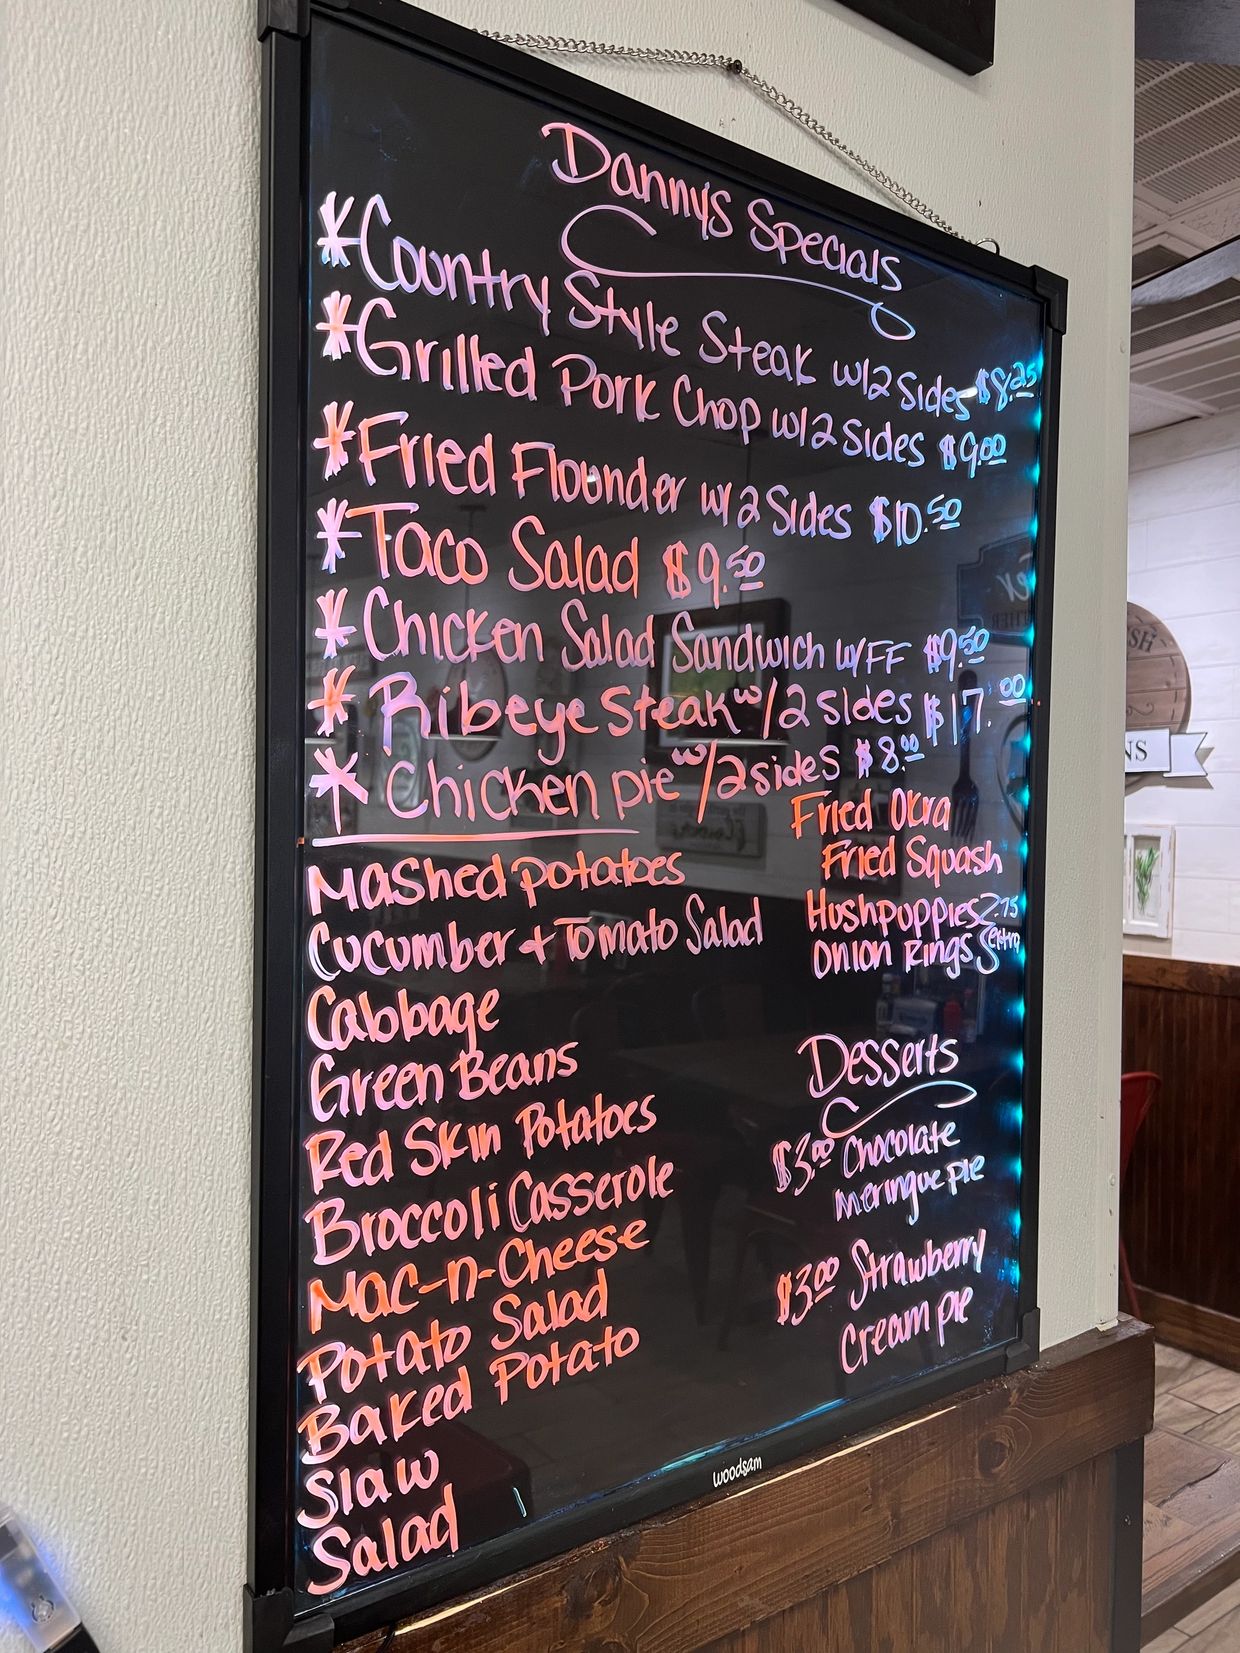 Dannys Specials
*Country Style Steak w/2 Sides $8.25
*Grilled Pork Chop w/2 Sides $9.00
*Fried Flounder w/2 Sides $10.50
*Taco Salad $9.50
*Chicken Salad Sandwich w/FF $9.50
*Ribeye Steak w/2 sides $17.00
*Chicken pie w/2 sides $8.00
Mashed potatoes
Cucumber + Tomato Salad
Cabbage
Green Beans
Red Skin Potatoes
Broccoli Casserole
Mac-n-Cheese
Potato Salad
Baked Potato
Slaw
Salad
Fried Okra
Fried Squash
Hushpuppies 2.75
Onion Rings extra
Desserts
$3.00 Chocolate
meringue pie
$3.00 Strawberry
Cream pie
woodsam
SH
NS